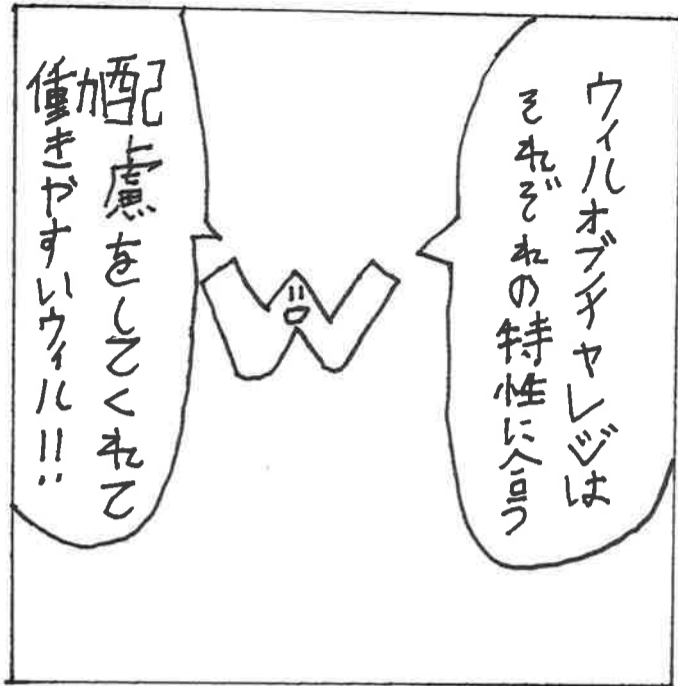 ウィルオブチャレジは
それぞれの特性に合う
配慮をしてくれて
働きやすいウィル!!